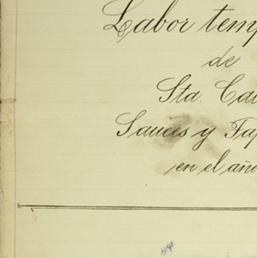 Labor temp
de
Sta. Ca
Sauces y Ta
en el año